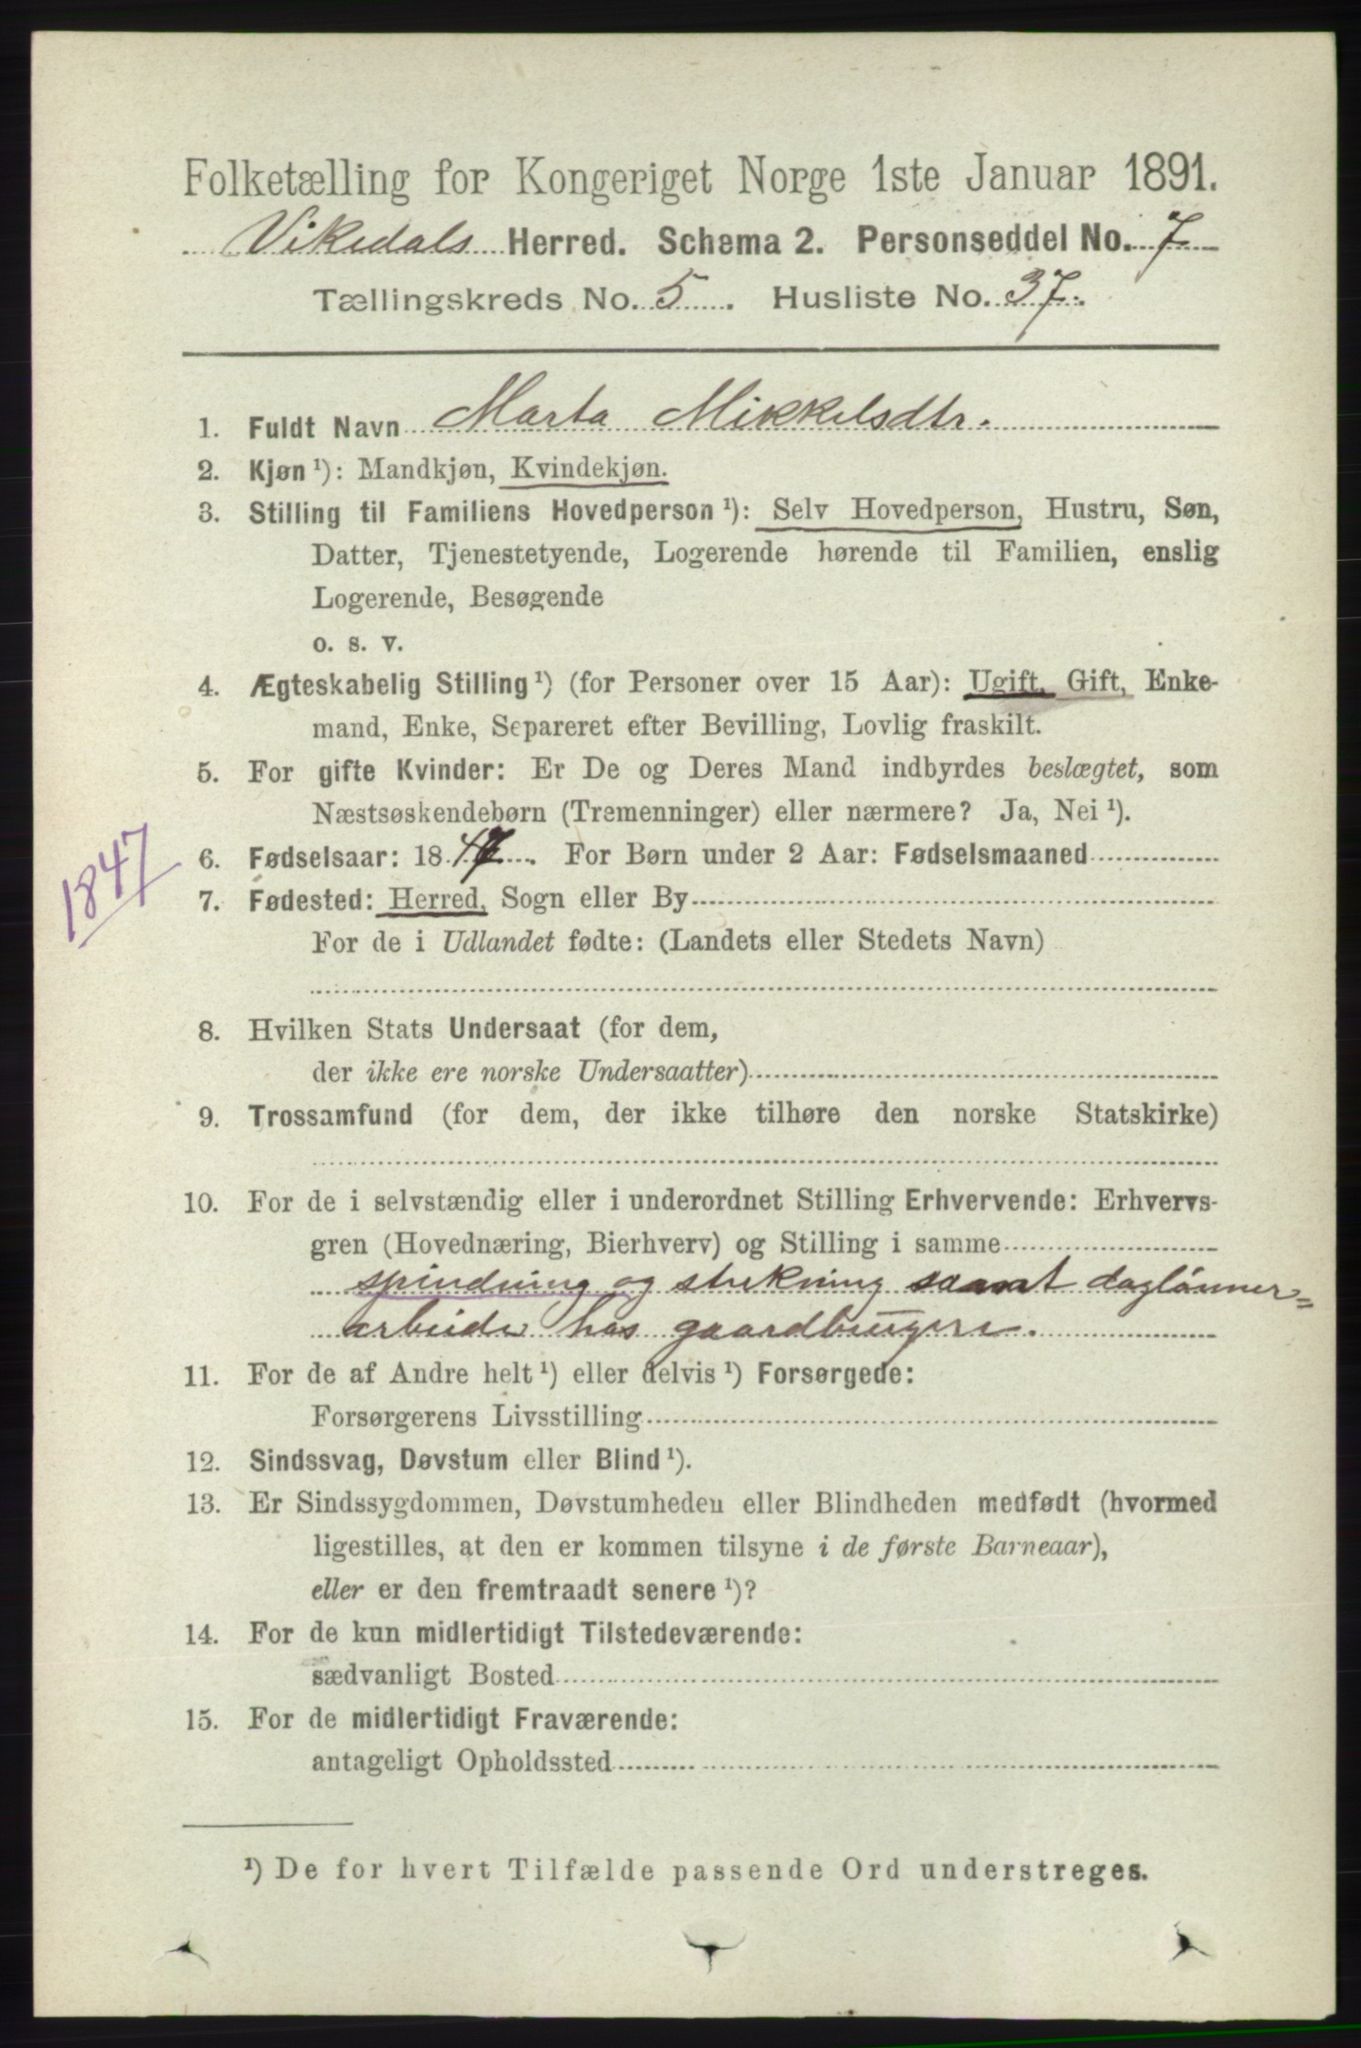 Folketælling for Kongeriget Norge 1ste Januar 1891.
Vikedals Herred. Schema 2. Personseddel No. 7
Tællingskreds No. 5. Husliste No. 37.
1. Fuldt Navn Marta Mikkelsdtr.
2. Kjøn¹): Mandkjøn, Kvindekjøn.
3. Stilling til Familiens Hovedperson¹): Selv Hovedperson, Hustru, Søn,
Datter, Tjenestetyende, Logerende hørende til Familien, enslig
Logerende, Besøgende
o. s. v.
4. Ægteskabelig Stilling¹) (for Personer over 15 Aar): Ugift, Gift, Enke-
mand, Enke, Separeret efter Bevilling, Lovlig fraskilt.
5. For gifte Kvinder: Er De og Deres Mand indbyrdes beslægtet, som
Næstsøskendebørn (Tremenninger) eller nærmere? Ja, Nei¹).
1847
6. Fødselsaar: 1847. For Børn under 2 Aar: Fødselsmaaned
7. Fødested: Herred, Sogn eller By
For de i Udlandet fødte: (Landets eller Stedets Navn)
8. Hvilken Stats Undersaat (for dem,
der ikke ere norske Undersaatter)
9. Trossamfund (for dem, der ikke tilhøre den norske Statskirke)
10. For de i selvstændig eller i underordnet Stilling Erhvervende: Erhvervs-
gren (Hovednæring, Bierhverv) og Stilling i samme
spindning og strikning samt daglønner=
arbeide hos gaardbrugere.
11. For de af Andre helt¹) eller delvis¹) Forsørgede:
Forsørgerens Livsstilling
12. Sindssvag, Døvstum eller Blind¹).
13. Er Sindssygdommen, Døvstumheden eller Blindheden medfødt (hvormed
ligestilles, at den er kommen tilsyne i de første Barneaar),
eller er den fremtraadt senere¹)?
14. For de kun midlertidigt Tilstedeværende:
sædvanligt Bosted
15. For de midlertidigt Fraværende:
antageligt Opholdssted
¹) De for hvert Tilfælde passende Ord understreges.